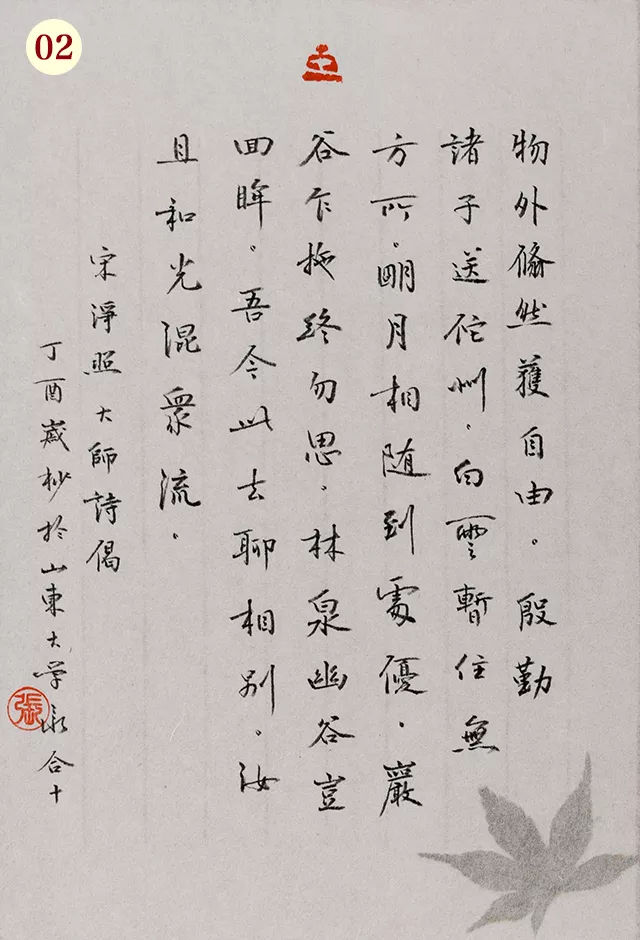 02
物外翛然獲自由。殷勤
諸子送佗州。白雲暫住無
方所。明月相随到處優。巖
谷乍拖終勿思。林泉幽谷豈
回眸。吾今此去聊相别。汝
且和光混衆流。
宋淨照大師詩偈
丁酉歲杪於山東大学 合十
張